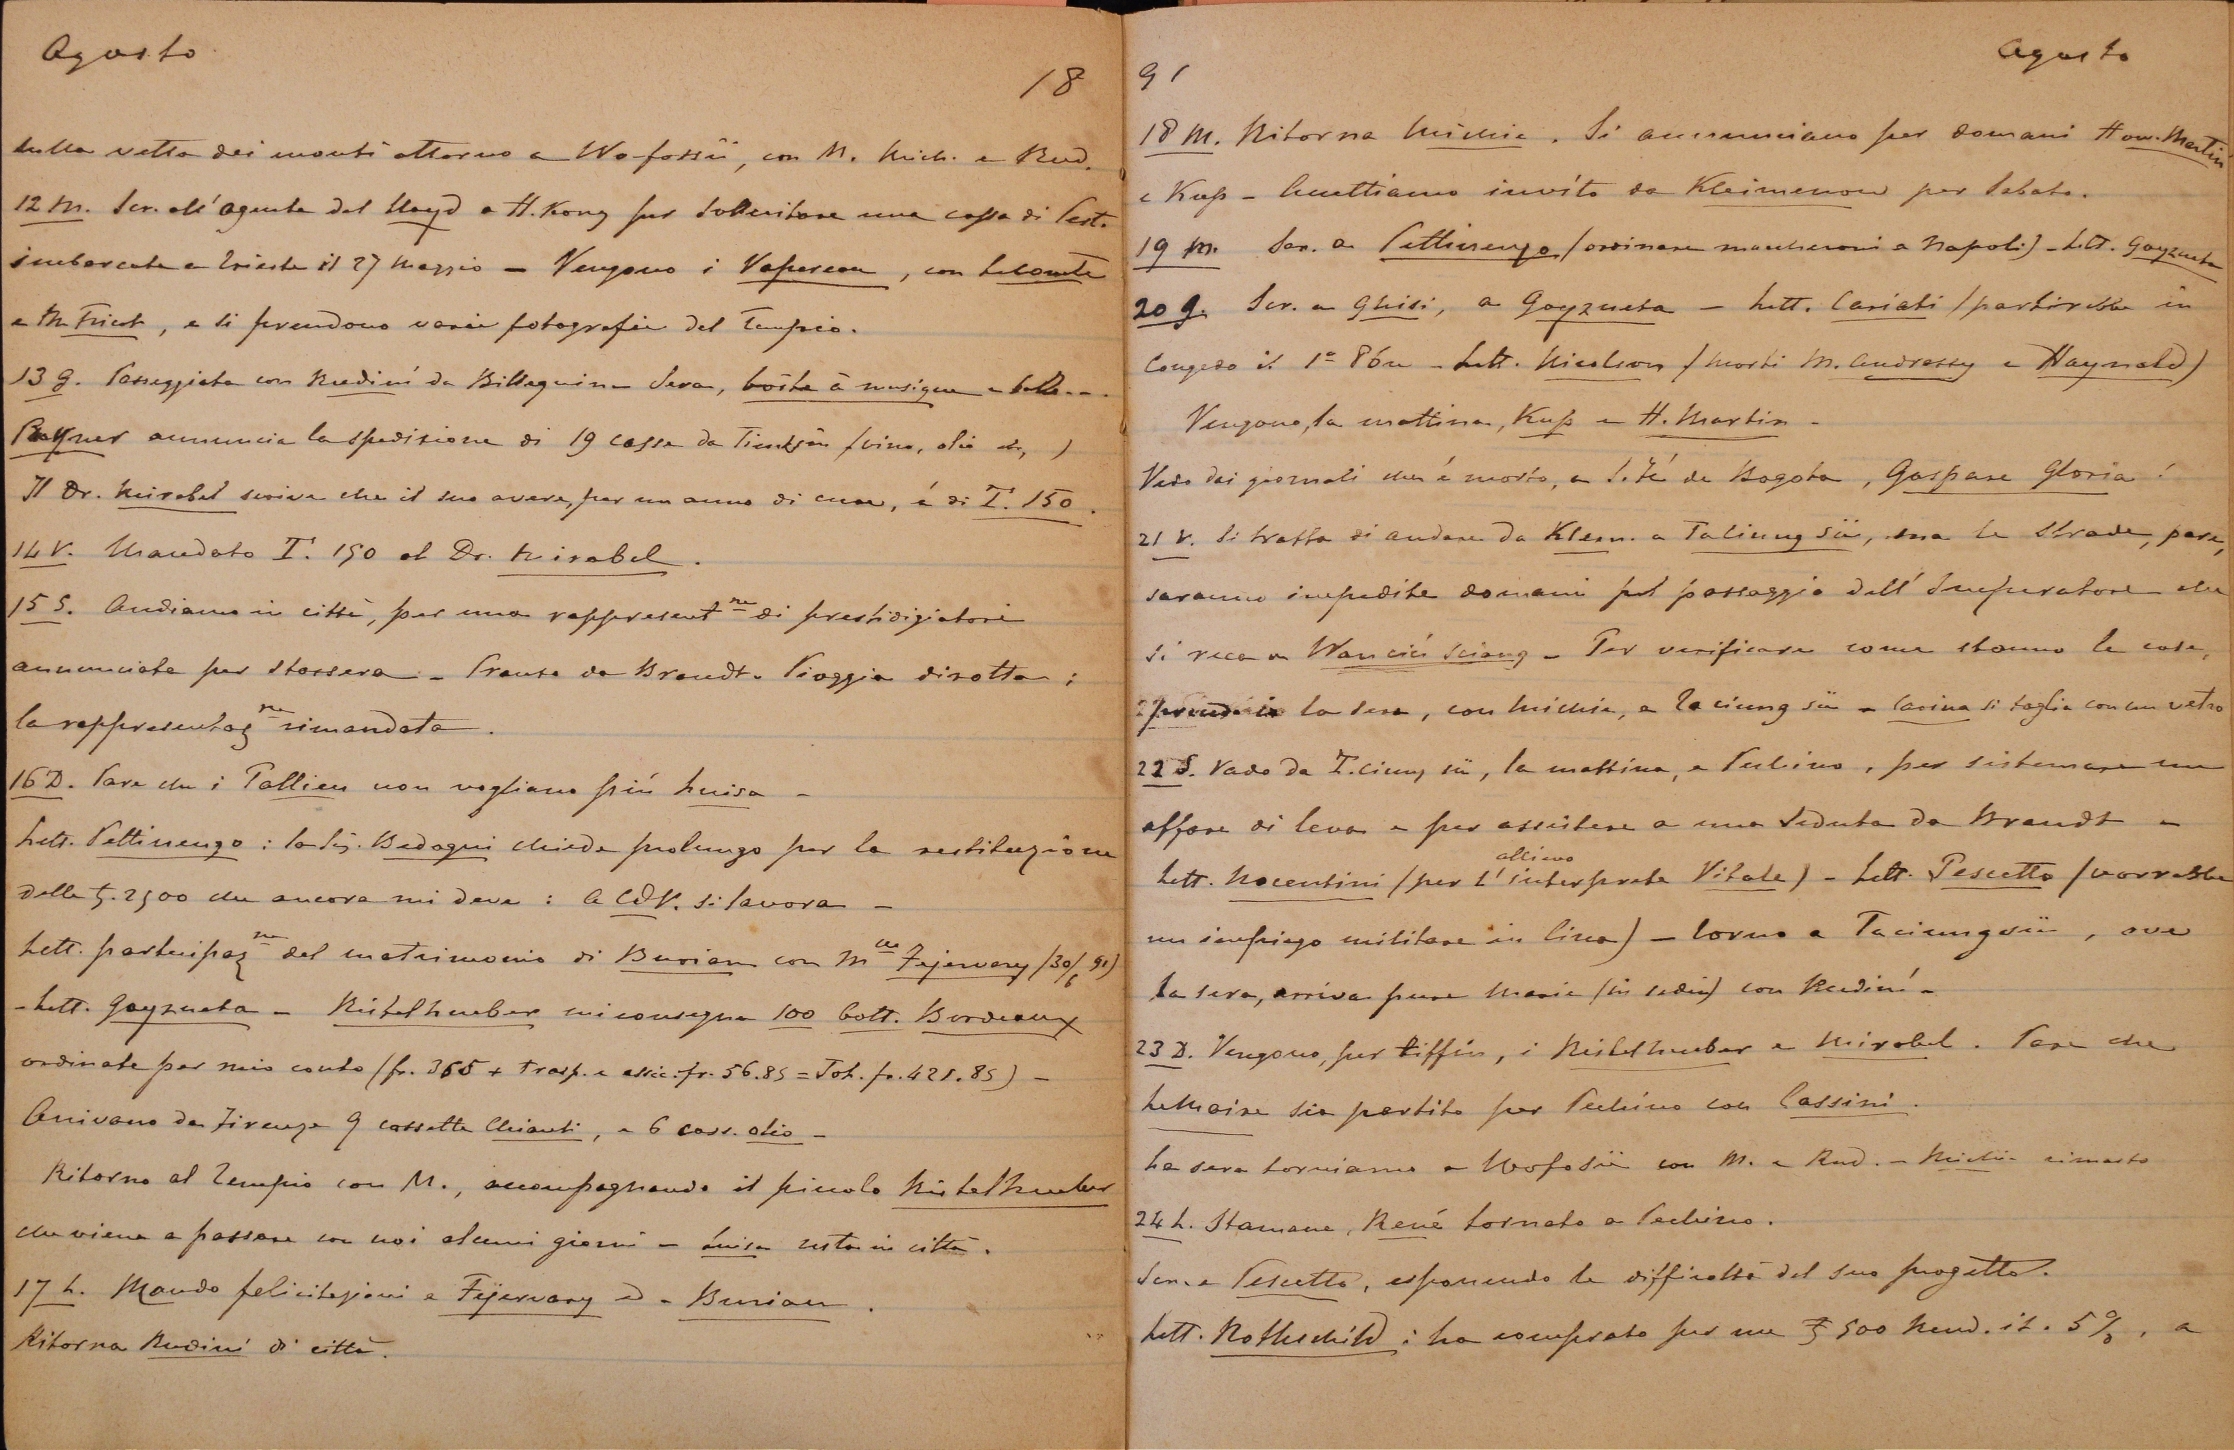 Agosto
18
sulla vetta dei monti attorno a Wofossü, con M. Mich. e Rud.
12 M. Scr. all'agente del Lloyd a H. Kong per sollecitare una cassa di Pest.
imbarcata a Trieste il 27 Maggio – Vengono i Vapereau, con Lecomte
e , e si prendono varie fotografie del Tempio.
13 g. Passeggiata con Rudini da Billequin – Sera, boîte à musique e balla...
Rayner annuncia la spedizione di 19 casse da Tientsin (vino, olio etc,)
Il Dr. Mirabel scrive che il suo avere, per un anno di cure, é di T. 150.
14 V. Mandato T. 150 al Dr. Mirabel.
15 S. Andiamo in città, per una rappresent.ne di prestidigiatori
annunciata per stassera – Pranzo da Brandt. Pioggia dirotta:
la rappresentaz.ne rimandata.
16 D. Pare che i Tallieu non vogliano più Luisa –
Lett. Pettinengo: la Sig. Bedogni chiede prolungo per la restituzione
delle £. 2500 che ancora mi deve: a CdV. si lavora –
Lett. partecipaz.ne del matrimonio di Burian con Mlle Fejervary (30/6 91)
– Lett. Goyzueta – Ristelhueber mi consegna 100 bott. Bordeaux
ordinate per mio conto (fr. 365 + trasp. e assic. fr. 56.85 = Tot. fr. 421.85) –
Arrivano da Firenze 9 cassette Chianti, e 6 cass. olio –
Ritorno al Tempio con M., accompagnando il piccolo Ristelhueber
che viene a passare con noi alcuni giorni – Luisa resta in città.
17 L. Mando felicitazioni a Fejervary ed a Burian.
Ritorna Rudini di città.
91
Agosto
18 M. Ritorna Michie. Si annunciano per domani How. Martin
e Kup – Accettiamo invito da Kleimenow per Sabato.
19 M. Scr. a Pettinengo (ordinare maccheroni a Napoli) – Lett. Goyzueta
20 g. Scr. a Ghisi, a Goyzueta – Lett. Cariati (partirebbe in
congedo il 1º 8bre – Lett. Nicolson (morti M. Andrassy e Haynald)
Vengono, la mattina, Kup e H. Martin –
Vedo dai giornali che é morto, a S. Fé de Bogota, Gaspare Gloria!
21 V. Si tratta di andare da Klem. a Taciungsü, ma le strade, pare,
saranno impedite domani pel passaggio dell'Imperatore che
si reca a Wanciú sciang – Per verificare come stanno le cose,
la sera, con Michie, a Taciungsü – Carina si taglia con un vetro
22 S. Vado da T.ciung sü, la mattina, a Pechino, per sistemare un
affare di leva e per assistere a una seduta da Brandt –
Lett. Nocentini (per l'allievo interprete Vitale) – Lett. Pescetto (vorrebbe
un impiego militare in Cina) – torno a Taciungsü, ove
la sera, arriva pure Maria (in sedia) con Rudini –
23 D. Vengono, per tiffin, i Ristelhueber e Mirabel. Pare che
Lemaire sia partito per Pechino con Cassini.
La sera torniamo a Wofosü con M. e Rud. – Michie rimasto
24 L. Stamane, René tornato a Pechino.
Scr. a Pescetto, esponendo le difficoltà del suo progetto.
Lett. Rothschild: ha comprato per me £ 500 Rend. it. 5%, a